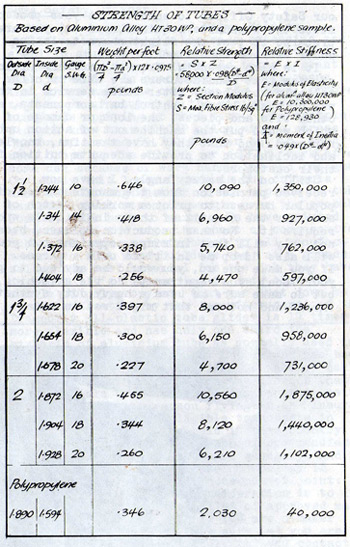 STRENGTH OF TUBES
Based on Aluminium Alloy HT30WP, and a polypropylene sample.
Tube Size Weight per foot Relative Strength Relative Stiffness
Outside Dia D Inside Dia d Gauge S.W.G. (πD² - πd²) × 12 × .0975 = S × Z = E × I
4 4 = 58000 × .098 (D⁴-d⁴) where:
pounds D E = Modulus of Elasticity
where: (for alum^m alloy HT30WP
Z = Section Modulus E = 10,000,000
S = Max. Fibre Stress lb/sq" for Polypropylene)
E = 128,930
and
pounds I = moment of Inertia
= .049 × (D⁴-d⁴)
1½ 1.244 10 .646 10,090 1,350,000
1.34 14 .418 6,960 927,000
1.372 16 .338 5,740 762,000
1.404 18 .256 4,470 597,000
1¾ 1.622 16 .397 8,000 1,236,000
1.654 18 .300 6,150 958,000
1.678 20 .227 4,700 731,000
2 1.872 16 .455 10,560 1,875,000
1.904 18 .344 8,120 1,440,000
1.928 20 .260 6,210 1,102,000
Polypropylene
1.890 1.594 .346 2,030 40,000